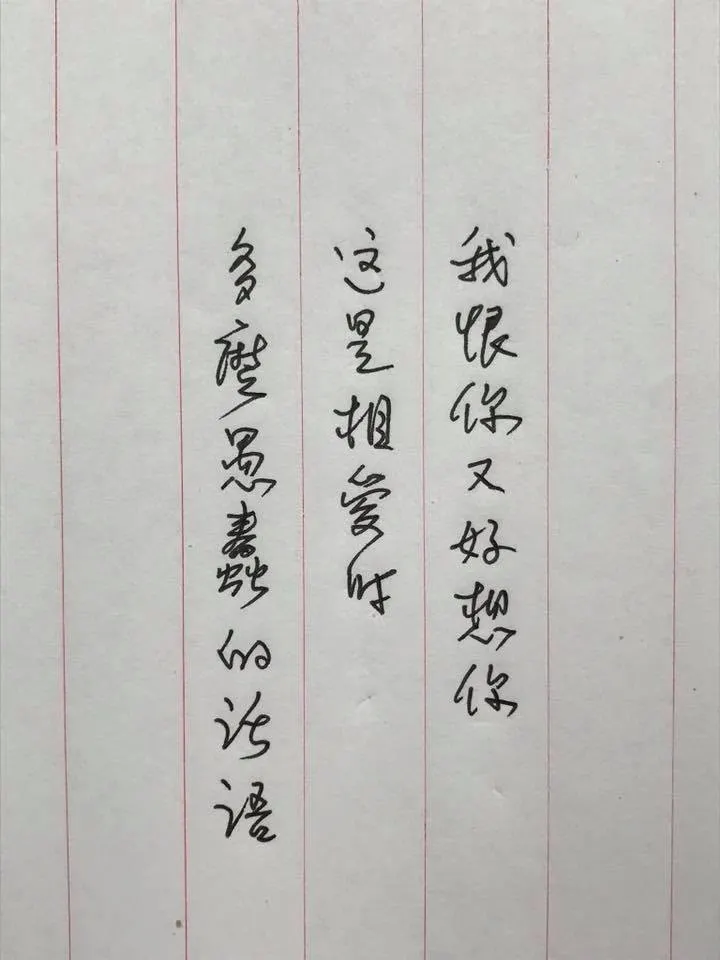 我恨你又好想你
这是相爱时
多麽愚蠢的话语